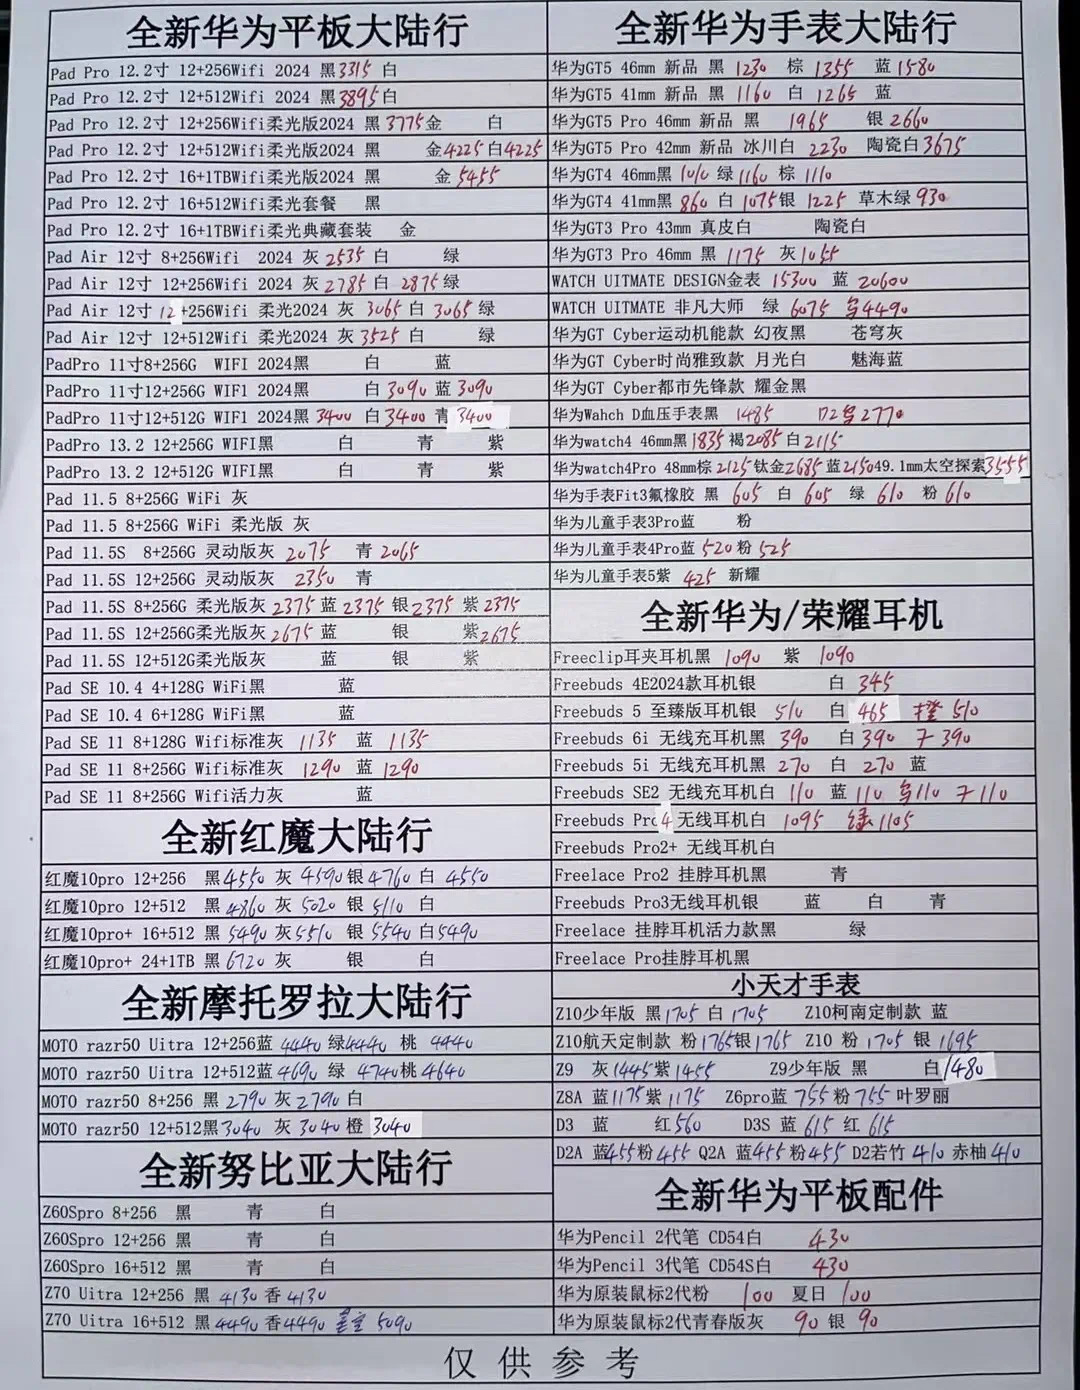 全新华为平板大陆行
Pad Pro 12.2寸 12+256Wifi 2024 黑3315 白
Pad Pro 12.2寸 12+512Wifi 2024 黑3895白
Pad Pro 12.2寸 12+256Wifi柔光版2024 黑3775金 白
Pad Pro 12.2寸 12+512Wifi柔光版2024 黑 金4225白4225
Pad Pro 12.2寸 16+1TBWifi柔光版2024 黑 金5455
Pad Pro 12.2寸 16+512Wifi柔光套餐 黑
Pad Pro 12.2寸 16+1TBWifi柔光典藏套装 金
Pad Air 12寸 8+256Wifi 2024 灰2535白 绿
Pad Air 12寸 12+256Wifi 2024 灰2785白 2875绿
Pad Air 12寸 12+256Wifi 柔光2024 灰 3065白 3065绿
Pad Air 12寸 12+512Wifi 柔光2024 灰 3525白 绿
PadPro 11寸8+256G WIFI 2024黑 白 蓝
PadPro 11寸12+256G WIF1 2024黑 白3090蓝3090
PadPro 11寸12+512G WIF1 2024黑3400 白3400青3400
PadPro 13.2 12+256G WIFI黑 白 青 紫
PadPro 13.2 12+512G WIFI黑 白 青 紫
Pad 11.5 8+256G WiFi 灰
Pad 11.5 8+256G WiFi 柔光版 灰
Pad 11.5S 8+256G 灵动版灰 2075 青2065
Pad 11.5S 12+256G 灵动版灰 2350 青
Pad 11.5S 8+256G 柔光版灰2375蓝2375银2375紫2375
Pad 11.5S 12+256G柔光版灰2675蓝 银 紫2675
Pad 11.5S 12+512G柔光版灰 蓝 银 紫
Pad SE 10.4 4+128G WiFi黑 蓝
Pad SE 10.4 6+128G WiFi黑 蓝
Pad SE 11 8+128G Wifi标准灰 1135 蓝 1135
Pad SE 11 8+256G Wifi标准灰 1290 蓝1290
Pad SE 11 8+256G Wifi活力灰 蓝
全新红魔大陆行
红魔10pro 12+256 黑4550灰4590银4760白4550
红魔10pro 12+512 黑4860灰5020银5110白
红魔10pro+ 16+512 黑5490灰5510银5540白5490
红魔10pro+ 24+1TB 黑6720灰 银 白
全新摩托罗拉大陆行
MOTO razr50 Uitra 12+256蓝 4440绿4440 桃 4440
MOTO razr50 Uitra 12+512蓝4690绿 4740桃4640
MOTO razr50 8+256 黑2790灰2790白
MOTO razr50 12+512黑3040灰3040橙3040
全新努比亚大陆行
Z60Spro 8+256 黑 青 白
Z60Spro 12+256 黑 青 白
Z60Spro 16+512 黑 青 白
Z70 Uitra 12+256 黑 4130香4130
Z70 Uitra 16+512 黑4490香4490 星空 5090
全新华为手表大陆行
华为GT5 46mm 新品 黑 1230 棕 1355 蓝1580
华为GT5 41mm 新品 黑 1160 白 1265 蓝
华为GT5 Pro 46mm 新品 黑 1965 银2660
华为GT5 Pro 42mm 新品 冰川白 2230 陶瓷白3675
华为GT4 46mm黑1010绿1160棕1110
华为GT4 41mm黑860白1075银1225 草木绿930
华为GT3 Pro 43mm 真皮白 陶瓷白
华为GT3 Pro 46mm 黑1175 灰1055
WATCH UITMATE DESIGN金表 15300 蓝 20600
WATCH UITMATE 非凡大师 绿 6075 当4490
华为GT Cyber运动机能款 幻夜黑 苍穹灰
华为GT Cyber时尚雅致款 月光白 魅海蓝
华为GT Cyber都市先锋款 耀金黑
华为Wahch D血压手表黑 1485 D2当2770
华为watch4 46mm黑1835褐2085白2115
华为watch4Pro 48mm棕2125钛金2685蓝215049.1mm太空探索3555
华为手表Fit3氟橡胶 黑 605 白 605 绿 610 粉610
华为儿童手表3Pro蓝 粉
华为儿童手表4Pro蓝520粉525
华为儿童手表5紫 425 新耀
全新华为/荣耀耳机
Freeclip耳夹耳机黑 1090 紫 1090
Freebuds 4E2024款耳机银 白 345
Freebuds 5 至臻版耳机银 510 白465 橙510
Freebuds 6i 无线充耳机黑 390 白390 子390
Freebuds 5i 无线充耳机黑 270 白 270 蓝
Freebuds SE2 无线充耳机白 110 蓝110 当110 子110
Freebuds Pro4无线耳机白 1095 绿1105
Freebuds Pro2+ 无线耳机白
Freelace Pro2 挂脖耳机黑 青
Freebuds Pro3无线耳机银 蓝 白 青
Freelace 挂脖耳机活力款黑 绿
Freelace Pro挂脖耳机黑
小天才手表
Z10少年版 黑1705白1705 Z10柯南定制款 蓝
Z10航天定制款 粉1765银1765 Z10 粉1705银1695
Z9 灰1445紫1455 Z9少年版 黑 白1480
Z8A 蓝1175紫1175 Z6pro蓝 755粉755叶罗丽
D3 蓝 红560 D3S 蓝 615红 615
D2A 蓝455粉455 Q2A 蓝455粉455 D2若竹410赤柚410
全新华为平板配件
华为Pencil 2代笔 CD54白 430
华为Pencil 3代笔 CD54S白 430
华为原装鼠标2代粉 100 夏日 100
华为原装鼠标2代青春版灰 90银90
仅供参考